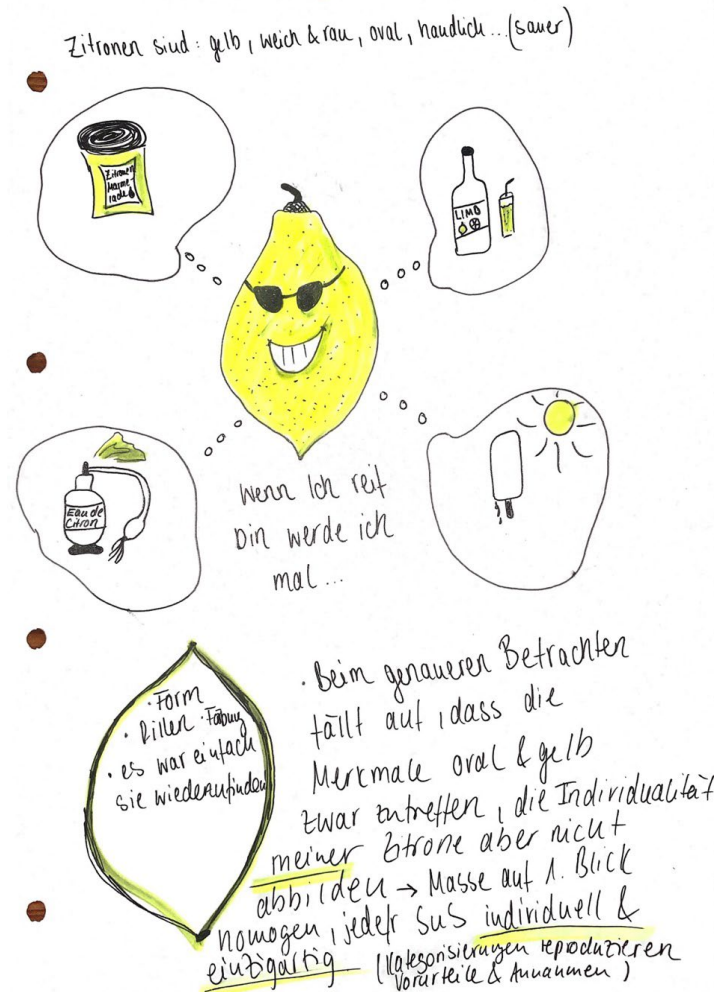 Zitronen sind: gelb, weich & rau, oval, handlich... (sauer)
Zitronen
Marme-
lade
LIMO
Eau de
Citron
Wenn Ich reif
bin werde ich
mal...
· Form
· Dillen · Fäbung
· es war einfach
sie wiederzufinden
· Beim genaueren Betrachten
fällt auf, dass die
Merkmale oval & gelb
zwar zutreffen, die Individualität
meiner Zitrone aber nicht
abbilden → Masse auf 1. Blick
homogen, jede*r SuS individuell &
einzigartig (Kategorisierungen reproduzieren
Vorurteile & Annahmen)